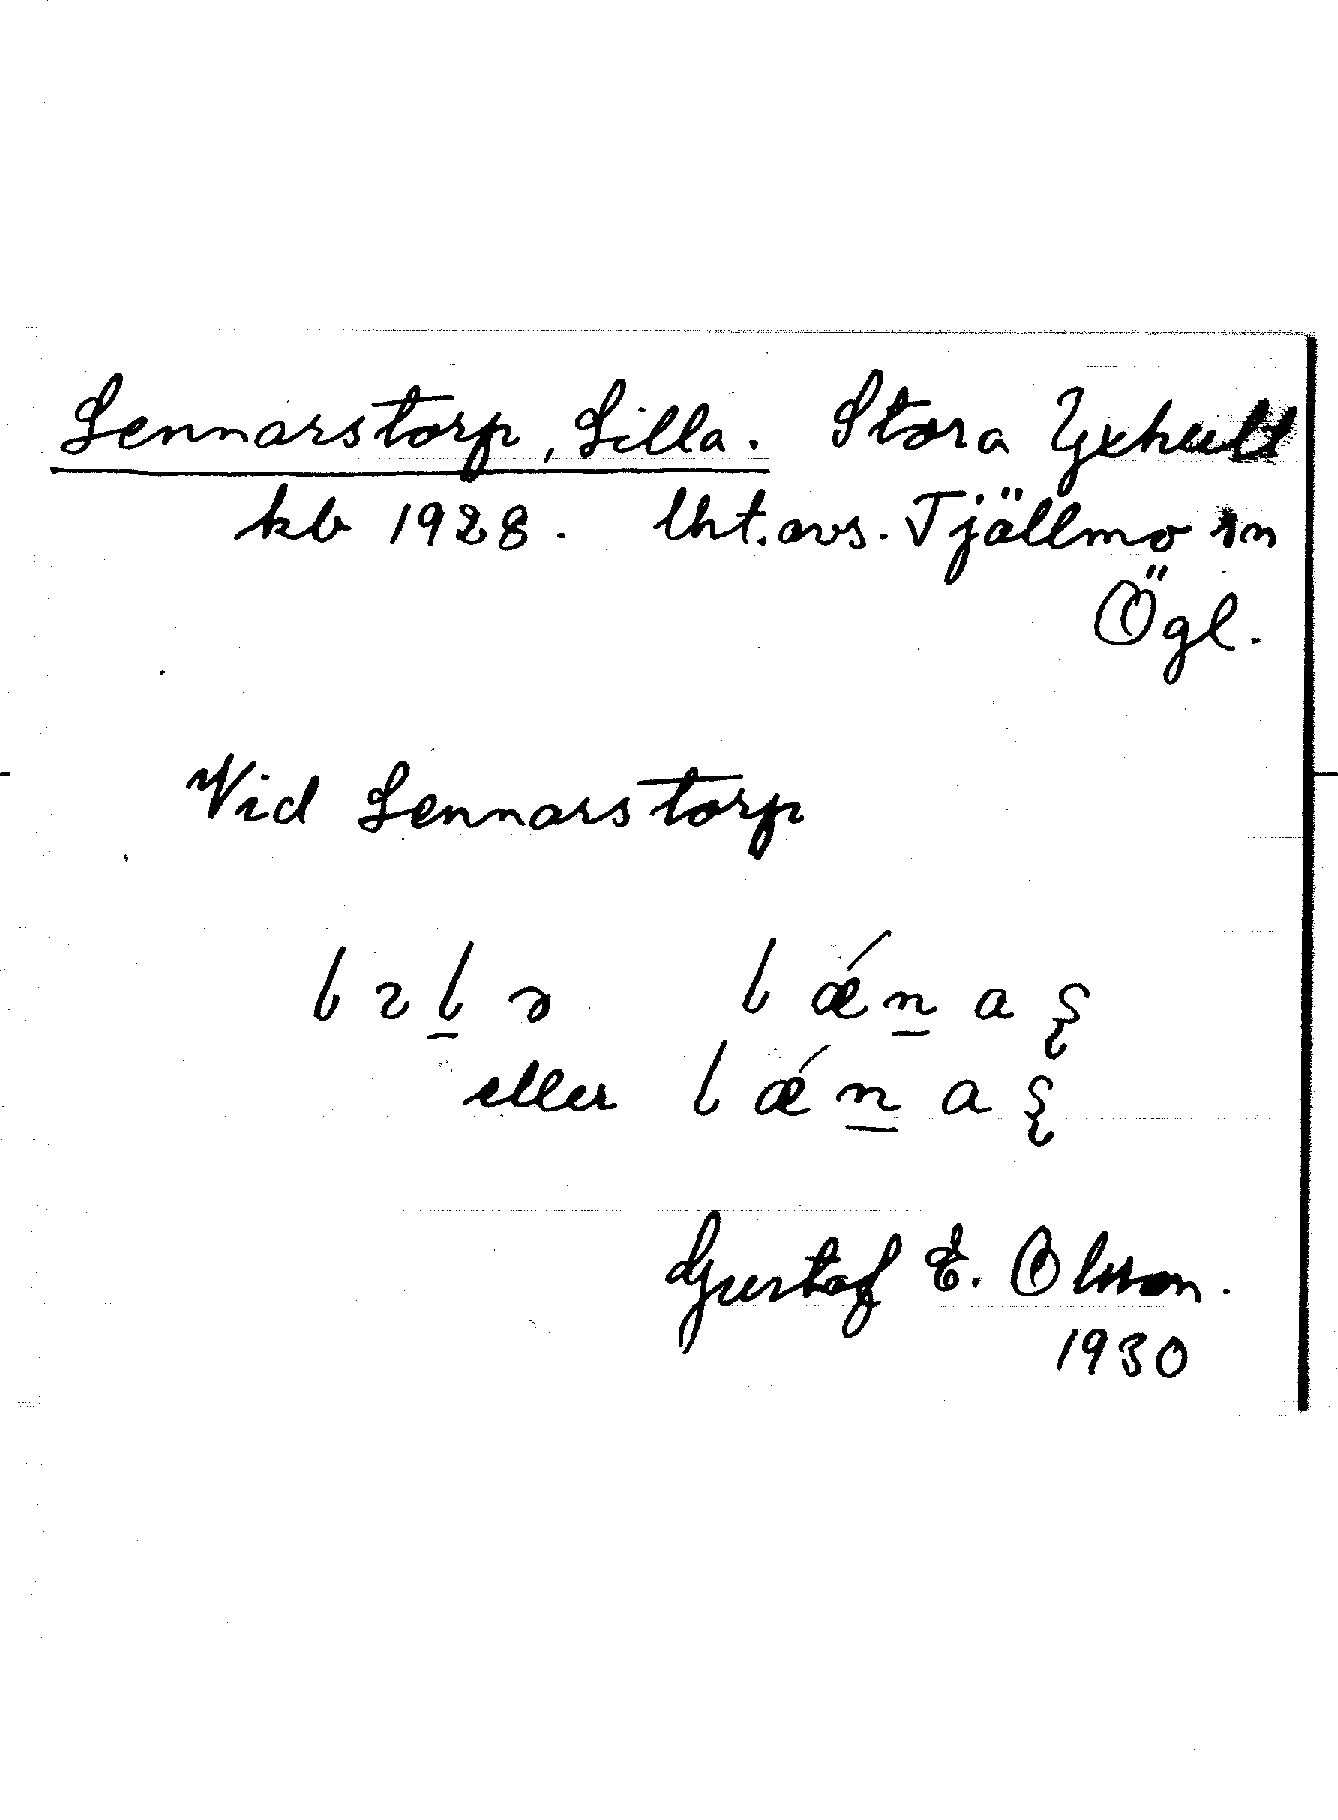 Lennarstorp, Lilla. Stora Yxhult
kb 1928. lht.avs. Tjällmo sn
Ögl.
Vid Lennarstorp
eller
Gustaf E. Olsson.
1930